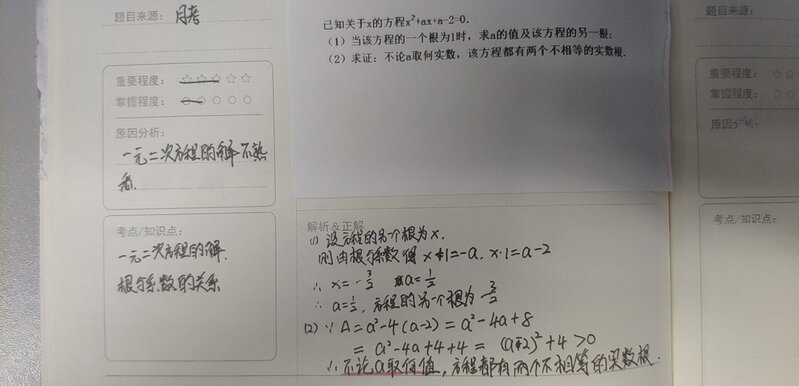 题目来源: 月考
重要程度: ☆☆☆☆☆
掌握程度: ○○○○○
原因分析:
一元二次方程的解不熟
悉.
考点/知识点:
一元二次方程的解.
根与系数的关系
已知关于x的方程x²+ax+a-2=0.
(1) 当该方程的一个根为1时, 求a的值及该方程的另一根;
(2) 求证: 不论a取何实数, 该方程都有两个不相等的实数根.
解析&正解
(1) 设方程的另一个根为x.
则由根与系数得 x+1=-a, x·1=a-2
∴ x=-3/2 a=1/2
∴ a=1/2, 方程的另一个根为-3/2
(2) ∵ Δ=a²-4(a-2)=a²-4a+8
=a²-4a+4+4=(a-2)²+4>0
∴ 不论a取何值, 方程都有两个不相等的实数根.
题目来源:
重要程度: ☆☆
掌握程度: ○○
原因分析:
考点/知识点: